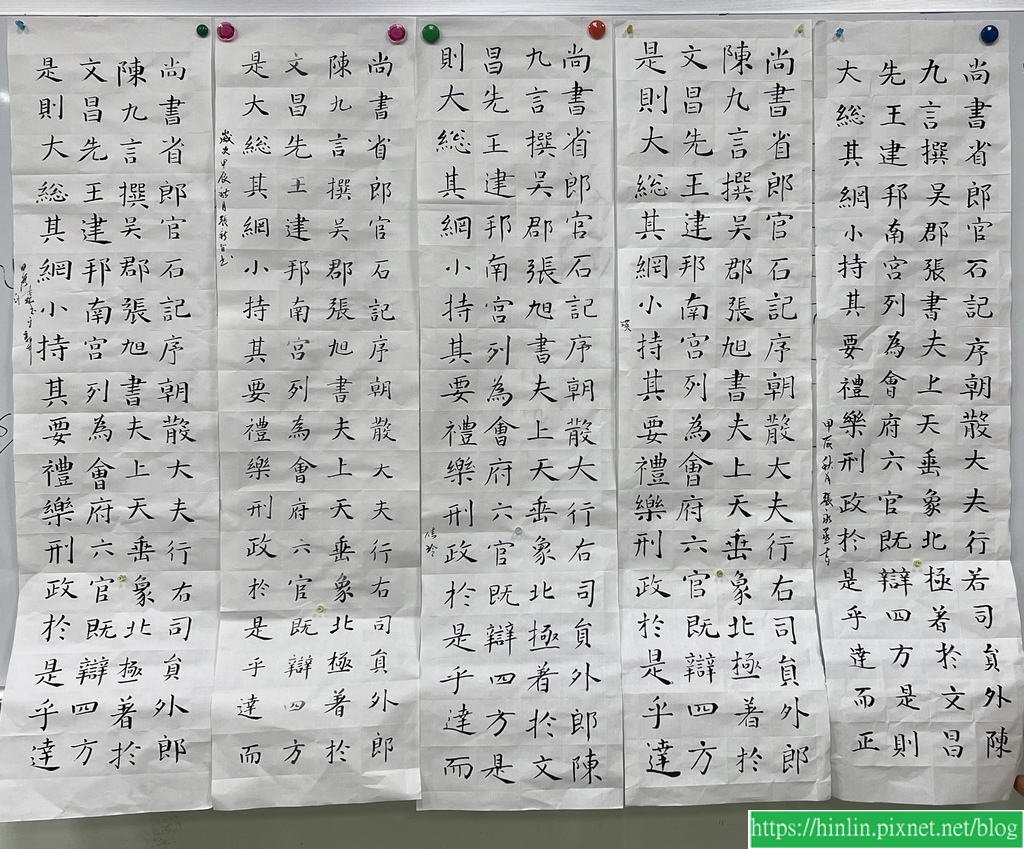 尚書省郎官石記序朝散大夫行若司貟外陳
九言撰吳郡張書夫上天垂象北極著於文昌
先王建邦南宮列為會府六官既辯四方是則
大総其網小持其要禮樂刑政於是乎達而正
甲辰秋月張永書
尚書省郎官石記序朝散大夫行右司貟外郎
陳九言撰吳郡張旭書夫上天垂象北極著於
文昌先王建邦南宮列為會府六官既辯四方
是則大総其網小持其要禮樂刑政於是乎達
瑛
尚書省郎官石記序朝散大夫行右司貟外郎陳
九言撰吳郡張旭書夫上天垂象北極著於文
昌先王建邦南宮列為會府六官既辯四方是
則大総其網小持其要禮樂刑政於是乎達而
尚書省郎官石記序朝散大夫行右司貟外郎
陳九言撰吳郡張旭書夫上天垂象北極著於
文昌先王建邦南宮列為會府六官既辯四方
是大総其網小持其要禮樂刑政於是乎達而
歲次甲辰秋月張書
尚書省郎官石記序朝散大夫行右司貟外郎
陳九言撰吳郡張旭書夫上天垂象北極著於
文昌先王建邦南宮列為會府六官既辯四方
是則大総其網小持其要禮樂刑政於是乎達
https://hinlin.pixnet.net/blog